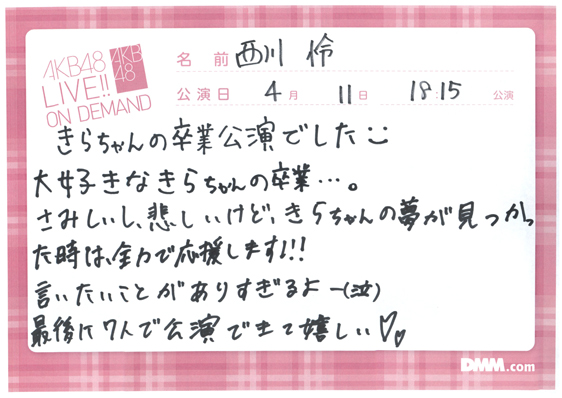 AKB48
LIVE!!
ON DEMAND
AKB
48
名前 西川 怜
公演日 4月 11日 18:15 公演
きらちゃんの卒業公演でした
大好きなきらちゃんの卒業…。
さみしいし、悲しいけど、きらちゃんの夢が見つかっ
た時は、全力で応援します!!!
言いたいことがありすぎるよー(泣)
最後に7人で公演できて嬉しい♡♡
DMM.com